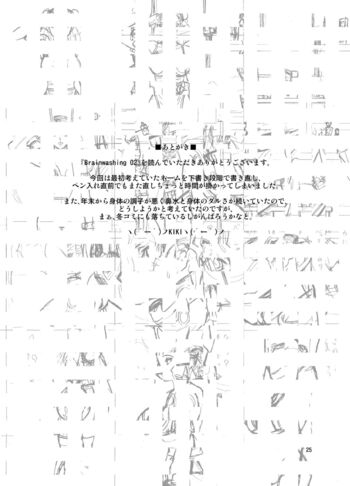 ■あとがき■
『Brainwashing 02』を読んでいただきありがとうございます。
今回は最初考えていたネームを下書き段階で書き直し、
ペン入れ直前でもまた直しちょっと時間が掛かってしまいました。
また、年末から身体の調子が悪く鼻水と身体のダルさが続いていたので、
どうしようかと考えていたのですが、
まぁ、冬コミにも落ちているしがんばろうかなと。
ヽ( ー )ノKIKIヽ( ー )ノ
25